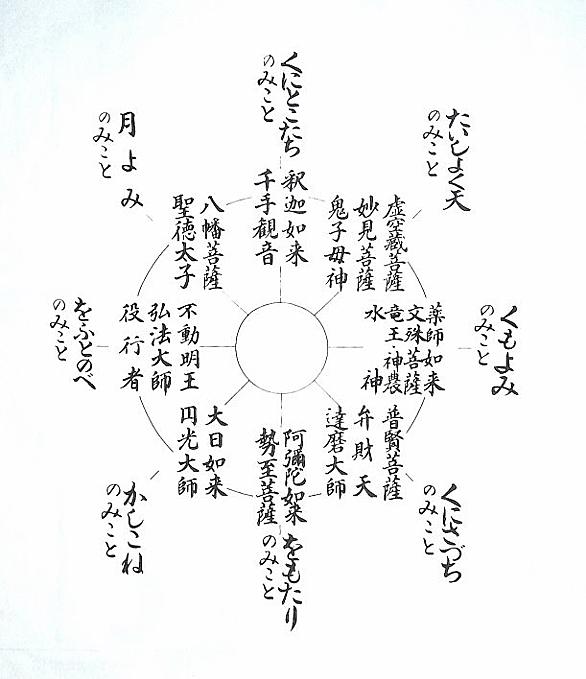 くにとこたち
のみこと
釈迦如来
千手観音
たいしよく天
のみこと
虚空蔵菩薩
妙見菩薩
鬼子母神
くもよみ
のみこと
薬師如来
文殊菩薩
竜王・神農
水神
くにさづち
のみこと
普賢菩薩
弁財天
達磨大師
阿彌陀如来
勢至菩薩
をもたり
のみこと
大日如来
円光大師
かしこね
のみこと
不動明王
弘法大師
役行者
をふとのべ
のみこと
八幡菩薩
聖徳太子
月よみ
のみこと